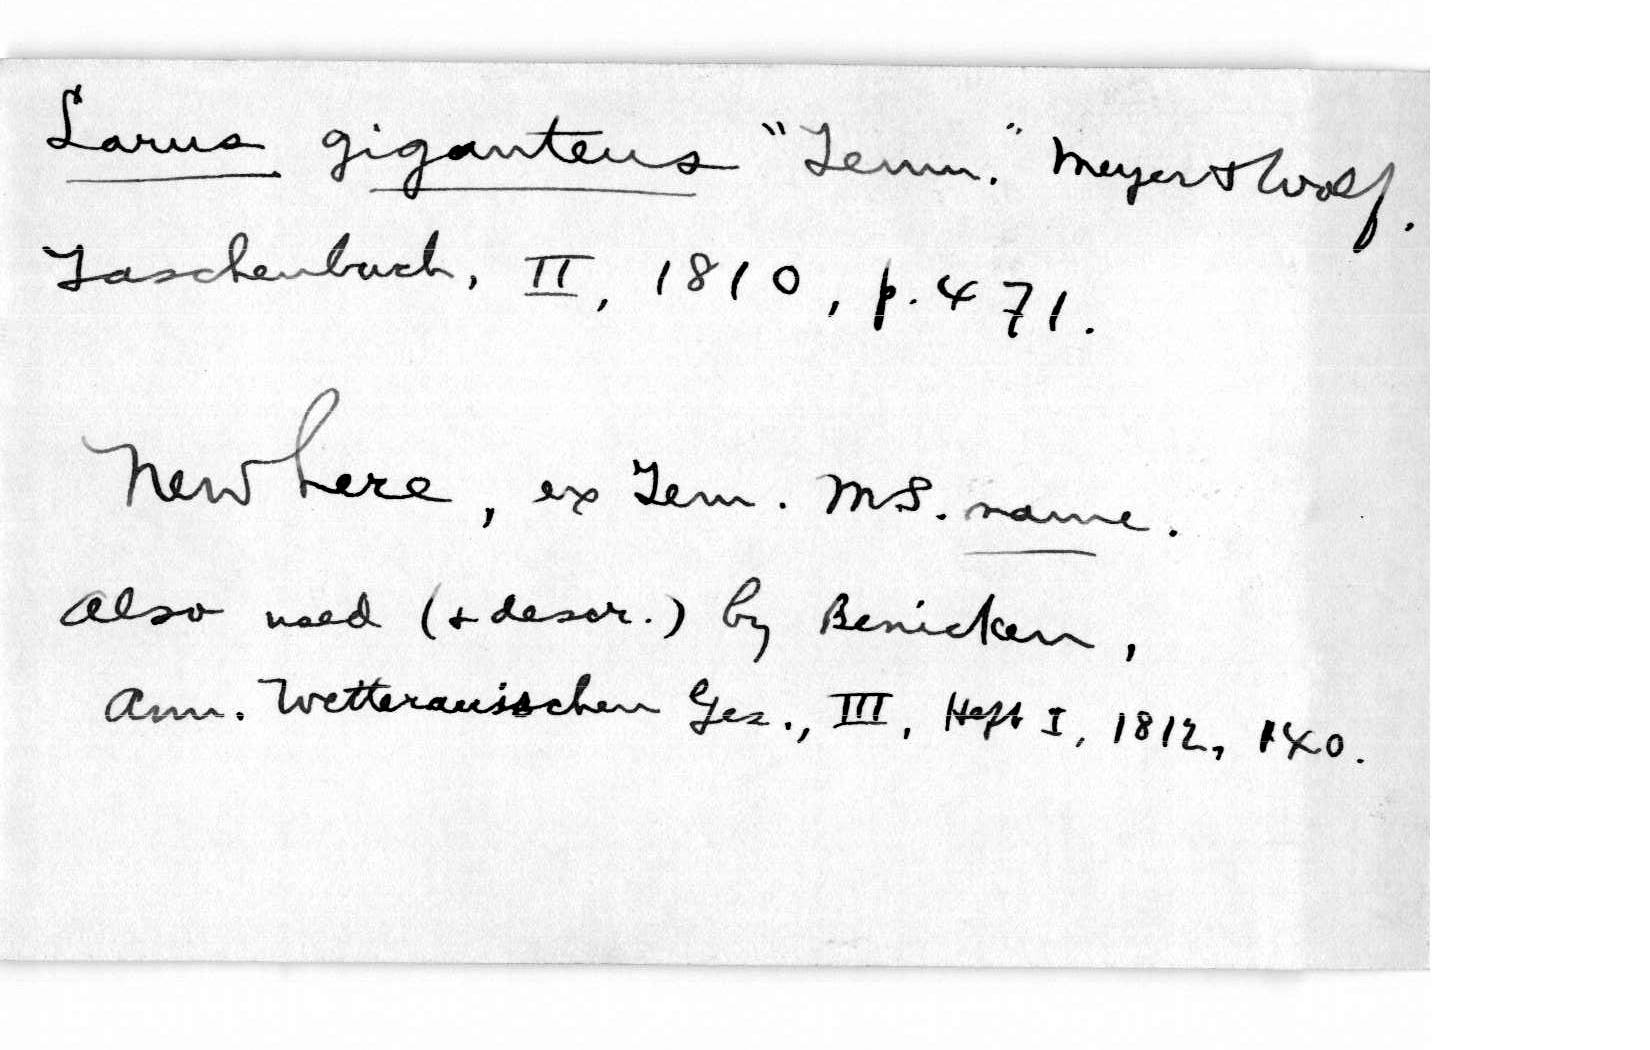 Larus giganteus "Temm." Meyer & Wolf.
Taschenbuch, II, 1810, p. 471.
New here, ex Tem. MS. name.
Also used (& descr.) by Benicken,
Ann. Wetterauischen Ges., III, Heft I, 1812, 140.